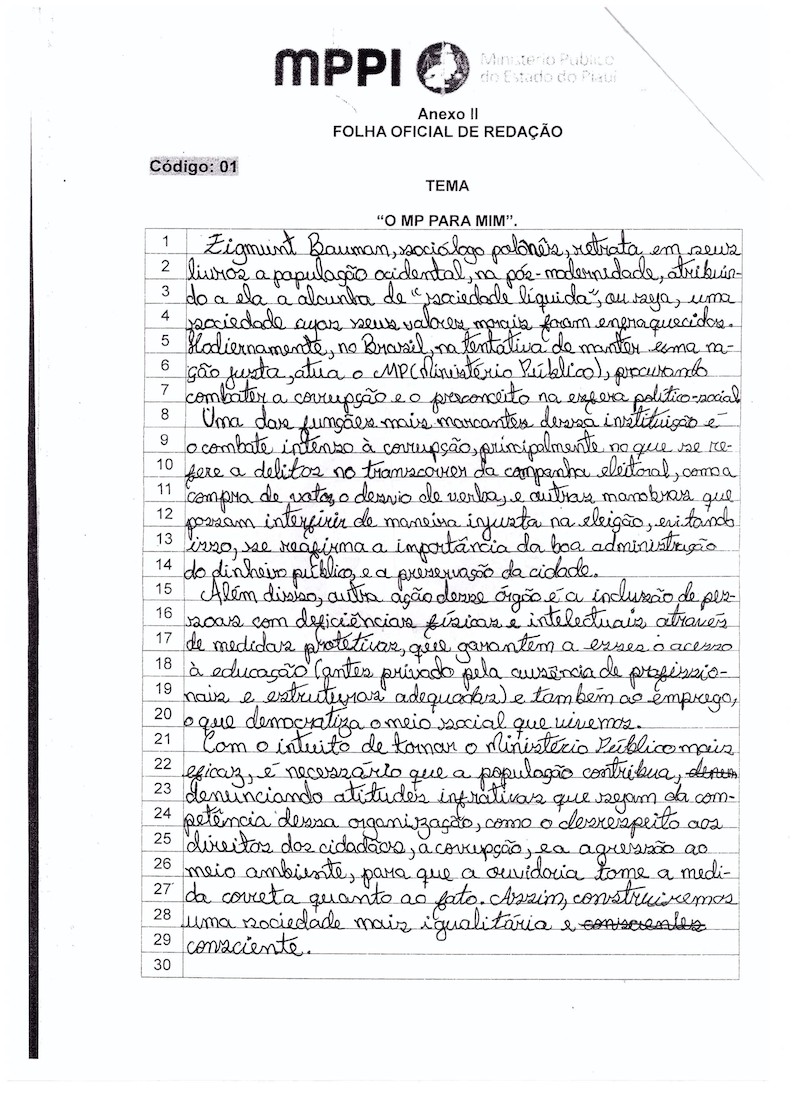 MPPI Ministério Público
do Estado do Piauí
Anexo II
FOLHA OFICIAL DE REDAÇÃO
Código: 01
TEMA
“O MP PARA MIM”.
1 Zigmunt Bauman, sociólogo polônês, retrata em seus
2 livros a população ocidental, na pós-modernidade, atribuin-
3 do a ela a alcunha de "sociedade líquida", ou seja, uma
4 sociedade cujos seus valores morais foram enfraquecidos.
5 Hodiernamente, no Brasil, na tentativa de manter uma na-
6 ção justa, atua o MP(Ministério Público), procurando
7 combater a corrupção e o preconceito na esfera político-social
8 Uma das funções mais marcantes dessa instituição é
9 o combate intenso à corrupção, principalmente no que se re-
10 fere a delitos no transcorrer da campanha eleitoral, como a
11 compra de votos, o desvio de verba, e outras manobras que
12 possam interfirir de maneira injusta na eleição, evitando
13 isso, se reafirma a importância da boa administração
14 do dinheiro público, e a preservação da cidade.
15 Além disso, outra ação desse órgão é a inclusão de pes-
16 soas com deficiências físicas e intelectuais através
17 de medidas protetivas, que garantem a esses o acesso
18 à educação (antes privado pela ausência de profissio-
19 nais e estruturas adequadas) e também ao emprego,
20 o que democratiza o meio social que vivemos.
21 Com o intuito de tornar o Ministério Público mais
22 eficaz, é necessário que a população contribua, denun
23 denunciando atitudes infrativas que sejam da com-
24 petência dessa organização, como o desrespeito aos
25 direitos dos cidadãos, a corrupção, e a agressão ao
26 meio ambiente, para que a ouvidoria tome a medi-
27 da correta quanto ao fato. Assim, construiremos
28 uma sociedade mais igualitária e conscientes
29 consciente.
30